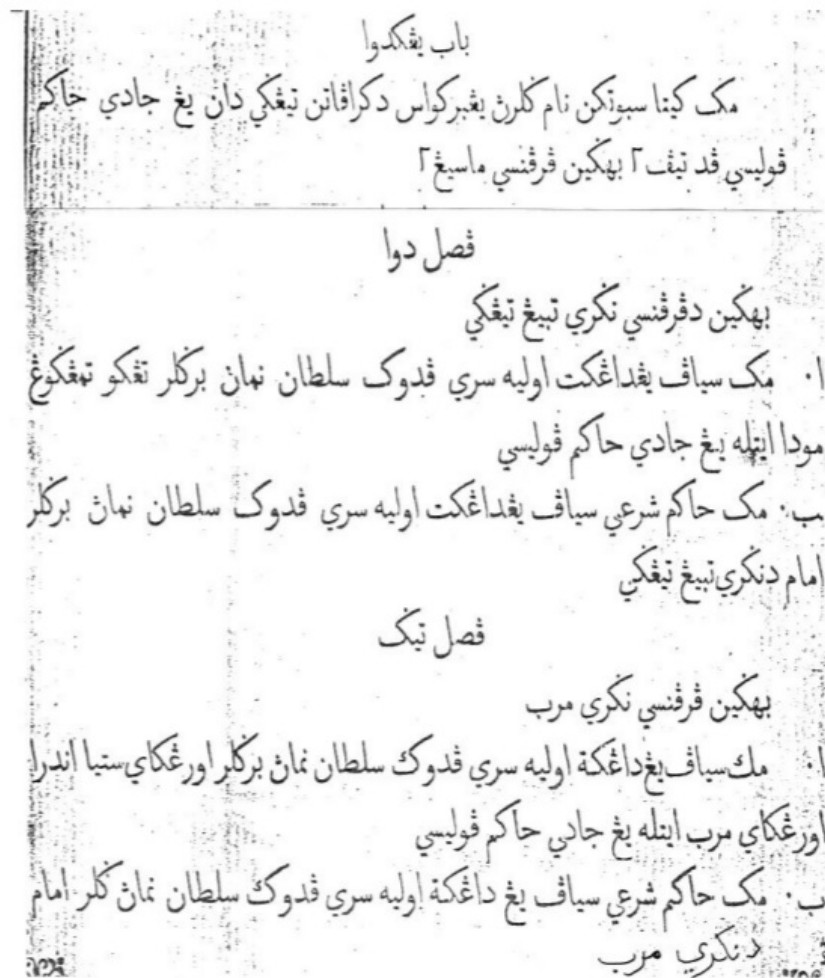 باب يڠكدوا
مک كيتا سبوتكن نام ݢلرن يڠبركواس دكراڤاتن تيڠݢي دان يڠ جادي حاكم
ڤوليسي ڤد تيڤ٢ بهݢين ڤرڤنسي ماسيڠ٢
ڤصل دوا
بهݢين دڤرڤنسي نݢري تبيڠ تيڠݢي
ا٠ مک سياڤ يڠداڠكت اوليه سري ڤدوک سلطان نمان برݢلر تڠكو تمڠݢوڠ
مودا ايتله يڠ جادي حاكم ڤوليسي
ب٠ مک حاكم شرعي سياڤ يڠداڠكت اوليه سري ڤدوک سلطان نمان برݢلر
امام دنݢري تبيڠ تيڠݢي
ڤصل تيݢ
بهݢين ڤرڤنسي نݢري مرب
ا٠ مك سياڤ يڠ داڠكة اوليه سري ڤدوك سلطان نمان برݢلر اورڠكاي ستيا اندرا
اورڠكاي مرب ايتله يڠ جادي حاكم ڤوليسي
ب٠ مک حاكم شرعي سياڤ يڠ داڠكة اوليه سري ڤدوك سلطان نمان ݢلر امام
دنݢري مرب